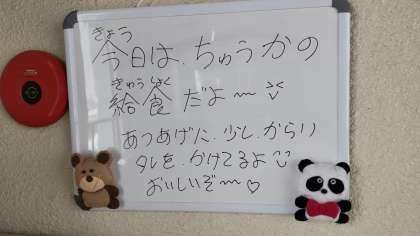 きょう
今日は、ちゅうかの
きゅうしょく
給食だよ〜
あつあげに、少し、からい
タレを、かけてるよ
おいしいぞ〜♡